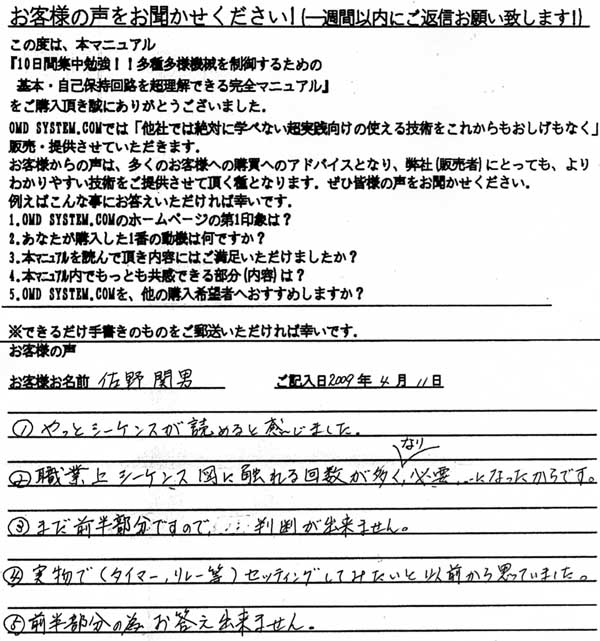 お客様の声をお聞かせください！(一週間以内にご返信お願い致します！)
この度は、本マニュアル
『10日間集中勉強！！多種多様機械を制御するための
基本・自己保持回路を超理解できる完全マニュアル』
をご購入頂き誠にありがとうございました。
OMD SYSTEM.COMでは「他社では絶対に学べない超実践向けの使える技術をこれからもおしげもなく」
販売・提供させていただきます。
お客様からの声は、多くのお客様への購買へのアドバイスとなり、弊社(販売者)にとっても、より
わかりやすい技術をご提供させて頂く種となります。ぜひ皆様の声をお聞かせください。
例えばこんな事にお答えいただければ幸いです。
1.OMD SYSTEM.COMのホームページの第1印象は？
2.あなたが購入した1番の動機は何ですか？
3.本マニュアルを読んで頂き内容にはご満足いただけましたか？
4.本マニュアル内でもっとも共感できる部分(内容)は？
5.OMD SYSTEM.COMを、他の購入希望者へおすすめしますか？
※できるだけ手書きのものをご郵送いただければ幸いです。
お客様の声
お客様お名前 佐野 関男 ご記入日2009年4月11日
① やっとシーケンスが読めると感じました。
② 職業上シーケンス図に触れる回数が多くなり、必要になったからです。
③ まだ前半部分ですので、…判断が出来ません。
④ 実物で(タイマー,リレー等)セッティングしてみたいと以前から思っていました。
⑤ 前半部分の為お答え出来ません。